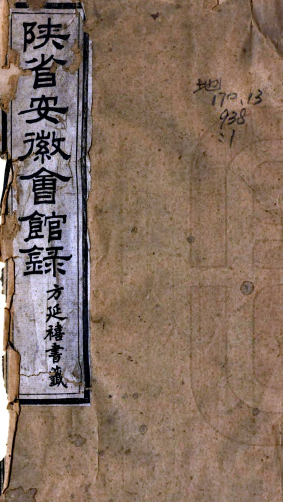 陝省安徽會館録
方延禧書籤
地
170.13
938
:1